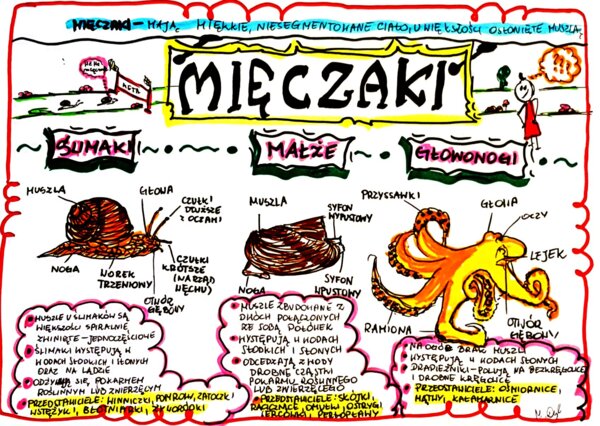 MIĘCZAKI – MAJĄ MIĘKKIE, NIESEGMENTOWANE CIAŁO, U WIĘKSZOŚCI OSŁONIĘTE MUSZLĄ
META
MIĘCZAKI
ŚLIMAKI
MAŁŻE
GŁOWONOGI
MUSZLA
GŁOWA
CZUŁKI
DŁUŻSZE
Z OCZAMI
CZUŁKI
KRÓTSZE
(NARZĄD
WĘCHU)
OTWÓR
GĘBOWY
WOREK
TRZEWIOWY
NOGA
MUSZLA
SYFON
WYPUSTOWY
SYFON
WPUSTOWY
NOGA
PRZYSSAWKI
GŁOWA
OCZY
LEJEK
OTWÓR
GĘBOWY
RAMIONA
MUSZLE U ŚLIMAKÓW SĄ
W WIĘKSZOŚCI SPIRALNIE
ZWINIĘTE – JEDNOCZĘŚCIOWE
ŚLIMAKI WYSTĘPUJĄ W
WODACH SŁODKICH I SŁONYCH
ORAZ NA LĄDZIE
ODŻYWIAJĄ SIĘ POKARMEM
ROŚLINNYM LUB ZWIERZĘCYM
PRZEDSTAWICIELE: WINNICZKI, POMROW, ZATOCZKI
WSTĘŻYKI, BŁOTNIARKI, ŻYWORÓDKI
MUSZLE ZBUDOWANE Z
DWÓCH POŁĄCZONYCH
ZE SOBĄ POŁÓWEK
WYSTĘPUJĄ W WODACH
SŁODKICH I SŁONYCH
ODCEDZAJĄ Z WODY
DROBNE CZĄSTKI
POKARMU ROŚLINNEGO
LUB ZWIERZĘCEGO
PRZEDSTAWICIELE: SKÓJKI,
RACICZNICE, OMUŁKI, OSTRYGI
SERCÓWKI, PERŁOPŁAWY
NA OGÓŁ BRAK MUSZLI
WYSTĘPUJĄ W WODACH SŁONYCH
DRAPIEŻNIKI – POLUJĄ NA BEZKRĘGOWCE
I DROBNE KRĘGOWCE
PRZEDSTAWICIELE: OŚMIORNICE,
MĄTWY, KAŁAMARNICE